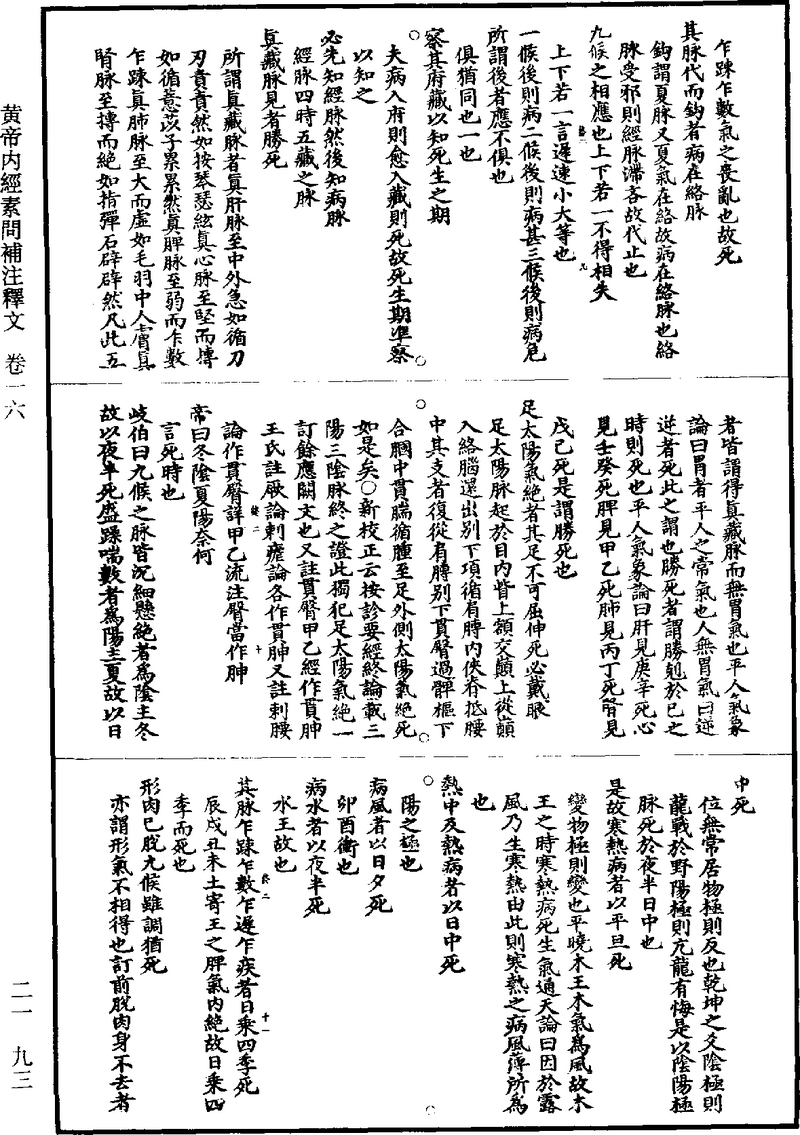 乍踈乍數氣之喪亂也故死
其脉代而鈎者病在絡脉
鈎謂夏脉又夏氣在絡故病在絡脉也絡
脉受邪則經脉滯吝故代止也
九候之相應也上下若一不得相失
上下若一言遲速小大等也
一候後則病二候後則病甚三候後則病危
所謂後者應不俱也
俱猶同也一也
察其府藏以知死生之期
夫病入府則愈入藏則死故死生期準察
以知之
必先知經脉然後知病脉
經脉四時五藏之脉
眞藏脉見者勝死
所謂眞藏脉者眞肝脉至中外急如循刀
刃責責然如按琴瑟絃眞心脉至堅而摶
如循薏苡子累累然眞脾脉至弱而乍數
乍踈眞肺脉至大而虛如毛羽中人膚眞
腎脉至摶而絕如指彈石辟辟然凡此五
者皆謂得眞藏脉而無胃氣也平人氣象
論曰胃者平人之常氣也人無胃氣曰逆
逆者死此之謂也勝死者謂勝剋於已之
時則死也平人氣象論曰肝見庚辛死心
見壬癸死脾見甲乙死肺見丙丁死腎見
戊己死是謂勝死也
足太陽氣絕者其足不可屈伸死必戴眼
足太陽脉起於目內眥上額交巔上從巔
入絡腦還出别下項循肩膊內俠脊抵腰
中其支者復從肩膊别下貫臀過髀樞下
合膕中貫腨循腫至足外側太陽氣絕死
如是矣○新校正云按診要經終論載三
陽三陰脉終之證此獨犯足太陽氣絕一
訂餘應闕文也又註貫臀甲乙經作貫胂
王氏註厥論刺瘧論各作貫胂又註刺腰
論作貫臀詳甲乙流注臀當作胂
帝曰冬陰夏陽奈何
言死時也
岐伯曰九候之脉皆沉細懸絕者爲陰主冬
故以夜半死盛躁喘數者爲陽主夏故以日
中死
位無常居物極則反也乾坤之爻陰極則
龍戰於野陽極則亢龍有悔是以陰陽極
脉死於夜半日中也
是故寒熱病者以平旦死
變物極則變也平曉木王木氣爲風故木
王之時寒熱病死生氣通天論曰因於露
風乃生寒熱由此則寒熱之病風薄所爲
也
熱中及熱病者以日中死
陽之極也
病風者以日夕死
卯酉衝也
病水者以夜半死
水王故也
其脉乍踈乍數乍遲乍疾者日乘四季死
辰戌丑未土寄王之脾氣內絕故日乘四
季而死也
形肉已脫九候雖調猶死
亦謂形氣不相得也訂前脫肉身不去者
黄帝内經素問補注釋文 卷一六
二一 九三